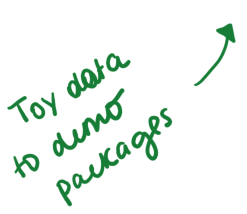 Toy data
to demo
packages